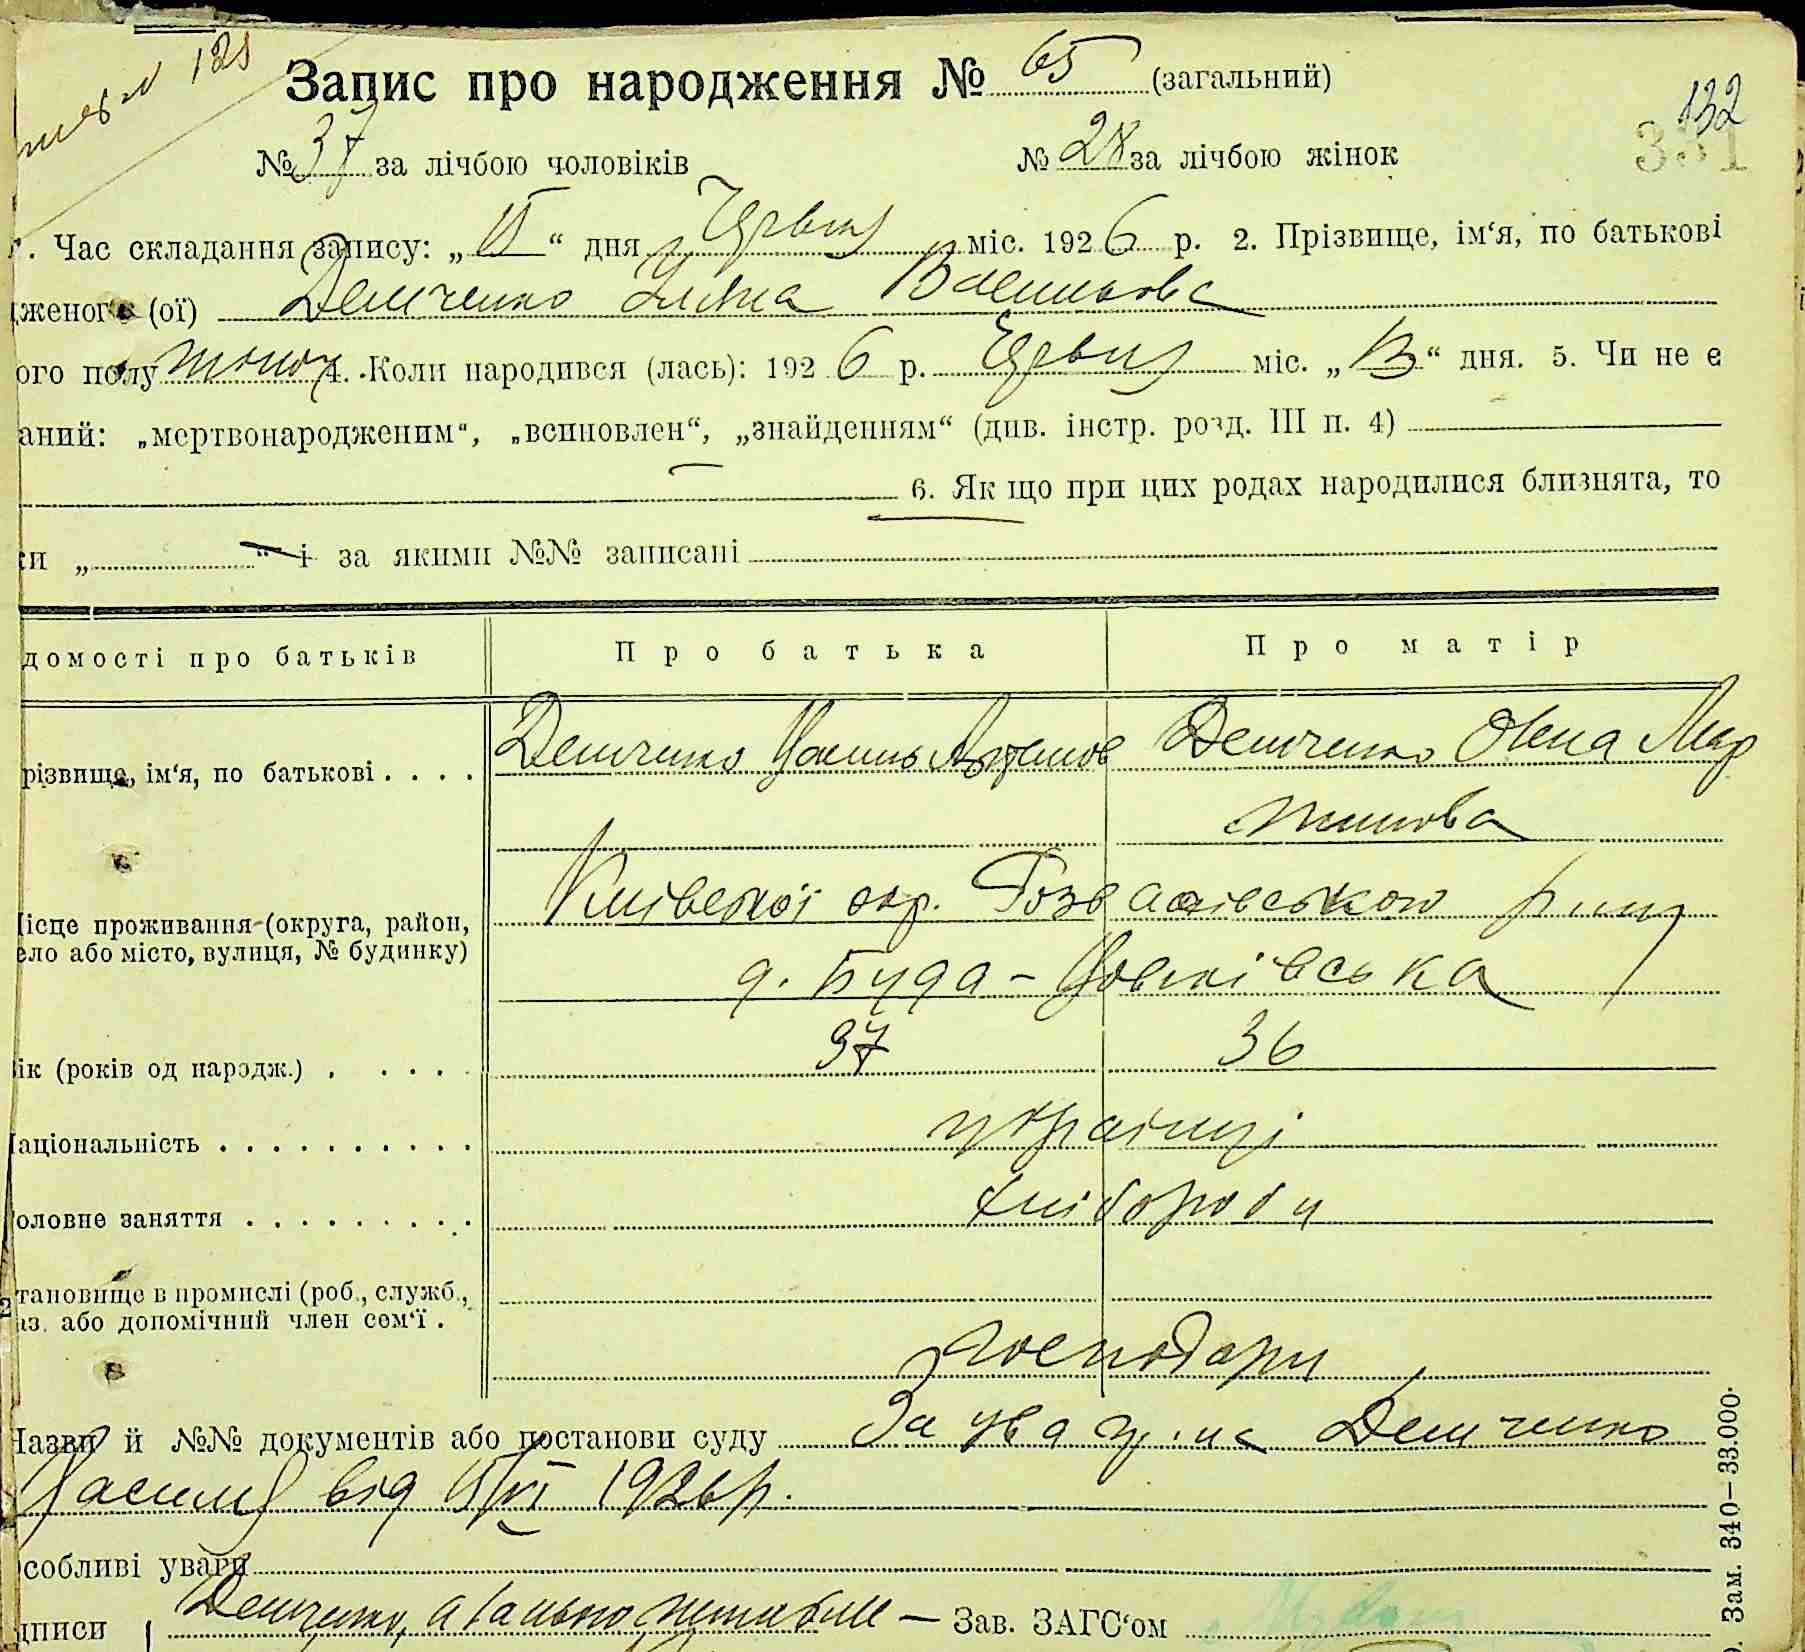 121
Запис про народження № 65 (загальний)
132
331
№ 37 за лічбою чоловіків № 28 за лічбою жінок
. Час складання запису: „15“ дня Червня міс. 1926 р. 2. Прізвище, ім‘я, по батькові
дженого (ої) Демченко Уляна Васильова
ого полу жіноч. 4. Коли народився (лась): 1926 р. Червня міс. „13“ дня. 5. Чи не є
аний: „мертвонародженим“, „всиновлен“, „знайденням“ (див. інстр. розд. III п. 4)
6. Як що при цих родах народилися близнята, то
ки „ “ і за якими №№ записані
домості про батьків Про батька Про матір
різвище, ім‘я, по батькові . . . . Демченко Василь Артемов Демченко Олена Мар
тинова
Місце проживання (округа, район, Київської окр. Розважівського району
ело або місто, вулиця, № будинку) д. Буда-Вовківська
ік (років од народж.) . . . . . 37 36
Національність . . . . . . . . . . українці
Головне заняття . . . . . . . . . хлібороби
тановище в промислі (роб., служб.,
аз. або допомічний член сем‘ї . господарі
Назви й №№ документів або постанови суду Заява гр-на Демченко
Василя від 15/VI 1926 р.
особливі уваги
дписи Демченко, а Зав. ЗАГС‘ом
Зам. 340—33.000.